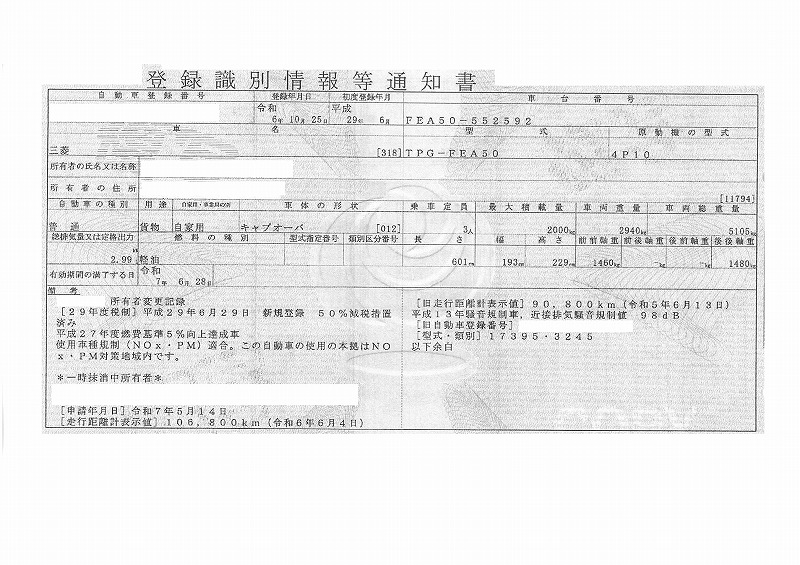 登録識別情報等通知書
自動車登録番号 登録年月日 初度登録年月 車台番号
令和 平成
6年 10月 25日 29年 6月 FEA50-552592
車名 型式 原動機の型式
三菱 [318] TPG-FEA50 4P10
所有者の氏名又は名称
所有者の住所
[11794]
自動車の種別 用途 自家用・事業用の別 車体の形状 乗車定員 最大積載量 車両重量 車両総重量
普通 貨物 自家用 キャブオーバ [012] 3人 2000kg 2940kg 5105kg
総排気量又は定格出力 燃料の種別 型式指定番号 類別区分番号 長さ 幅 高さ 前前軸重 前後軸重 後前軸重 後後軸重
2.99 軽油 601cm 193cm 229cm 1460kg -kg -kg 1480kg
有効期間の満了する日 令和
7年 6月 28日
備考
所有者変更記録
[29年度税制]平成29年6月29日 新規登録 50%減税措置
済み
平成27年度燃費基準5%向上達成車
使用車種規制(NOx・PM)適合。この自動車の使用の本拠はNO
x・PM対策地域内です。
*一時抹消中所有者*
[申請年月日]令和7年5月14日
[走行距離計表示値]106,800km(令和6年6月4日)
[旧走行距離計表示値]90,800km(令和5年6月13日)
平成13年騒音規制車,近接排気騒音規制値 98dB
[旧自動車登録番号]
[型式・類別]17395・3245
以下余白